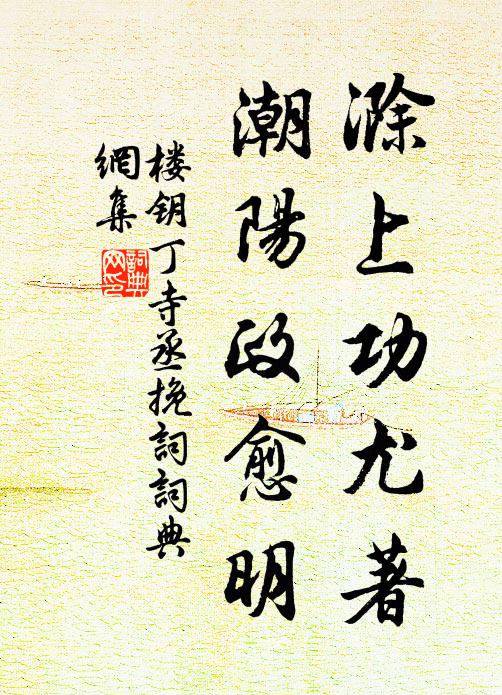 滁上功尤著
潮陽政愈明
楼钥丁寺丞挽詞詞典
網集
詞典
网印